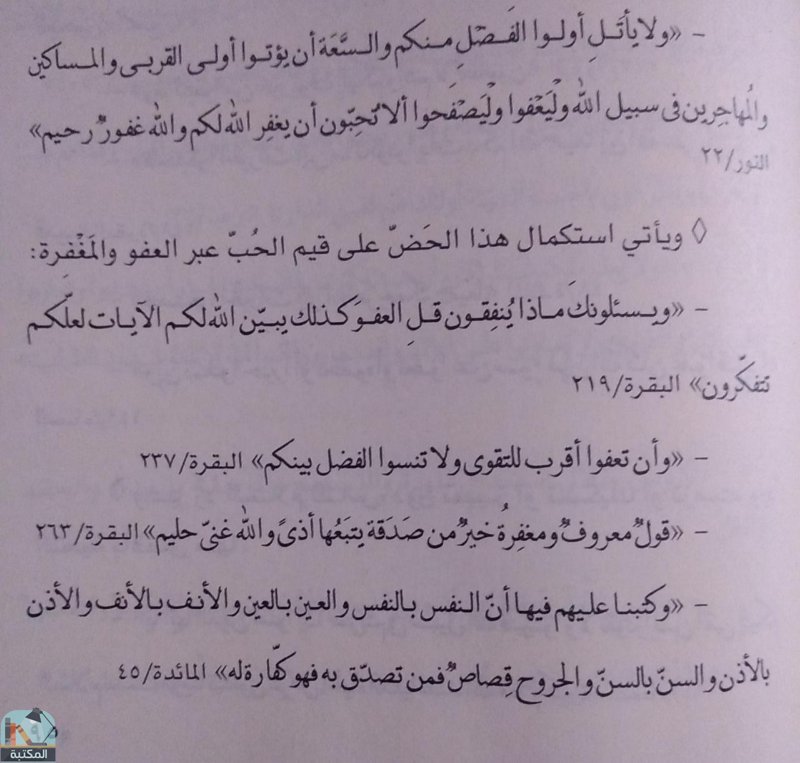 - «ولا يأتَلِ أولوا الفَضْلِ منكم والسَّعَة أن يؤتوا أولى القربى والمساكين
والمُهاجِرين فى سبيل الله وْليَعْفوا وْليَصْفَحوا ألا تُحِبّون أن يغفِر الله لكم والله غفورٌ رحيم»
النور/٢٢
◊ ويأتي استكمال هذا الحَضّ على قيم الحُبّ عبر العفو والمَغْفِرة:
- «ويسئلونكَ ماذا يُنفِقون قلِ العفوَ كذلك يبيّن الله لكم الآيات لعلّكم
تتفكّرون» البقرة/٢١٩
- «وأن تعفوا أقرب للتقوى ولا تنسوا الفضل بينكم» البقرة/٢٣٧
- «قولٌ معروفٌ ومغفِرةٌ خيرٌ من صَدَقة يتبَعُها أذىً والله غنىّ حليم» البقرة/٢٦٣
- «وكتبنا عليهم فيها أنّ النفس بالنفس والعين بالعين والأنف بالأنف والأذن
بالأذن والسنّ بالسنّ والجروح قِصاصٌ فمن تصدّق به فهو كفّارة له» المائدة/٤٥
المكتبة